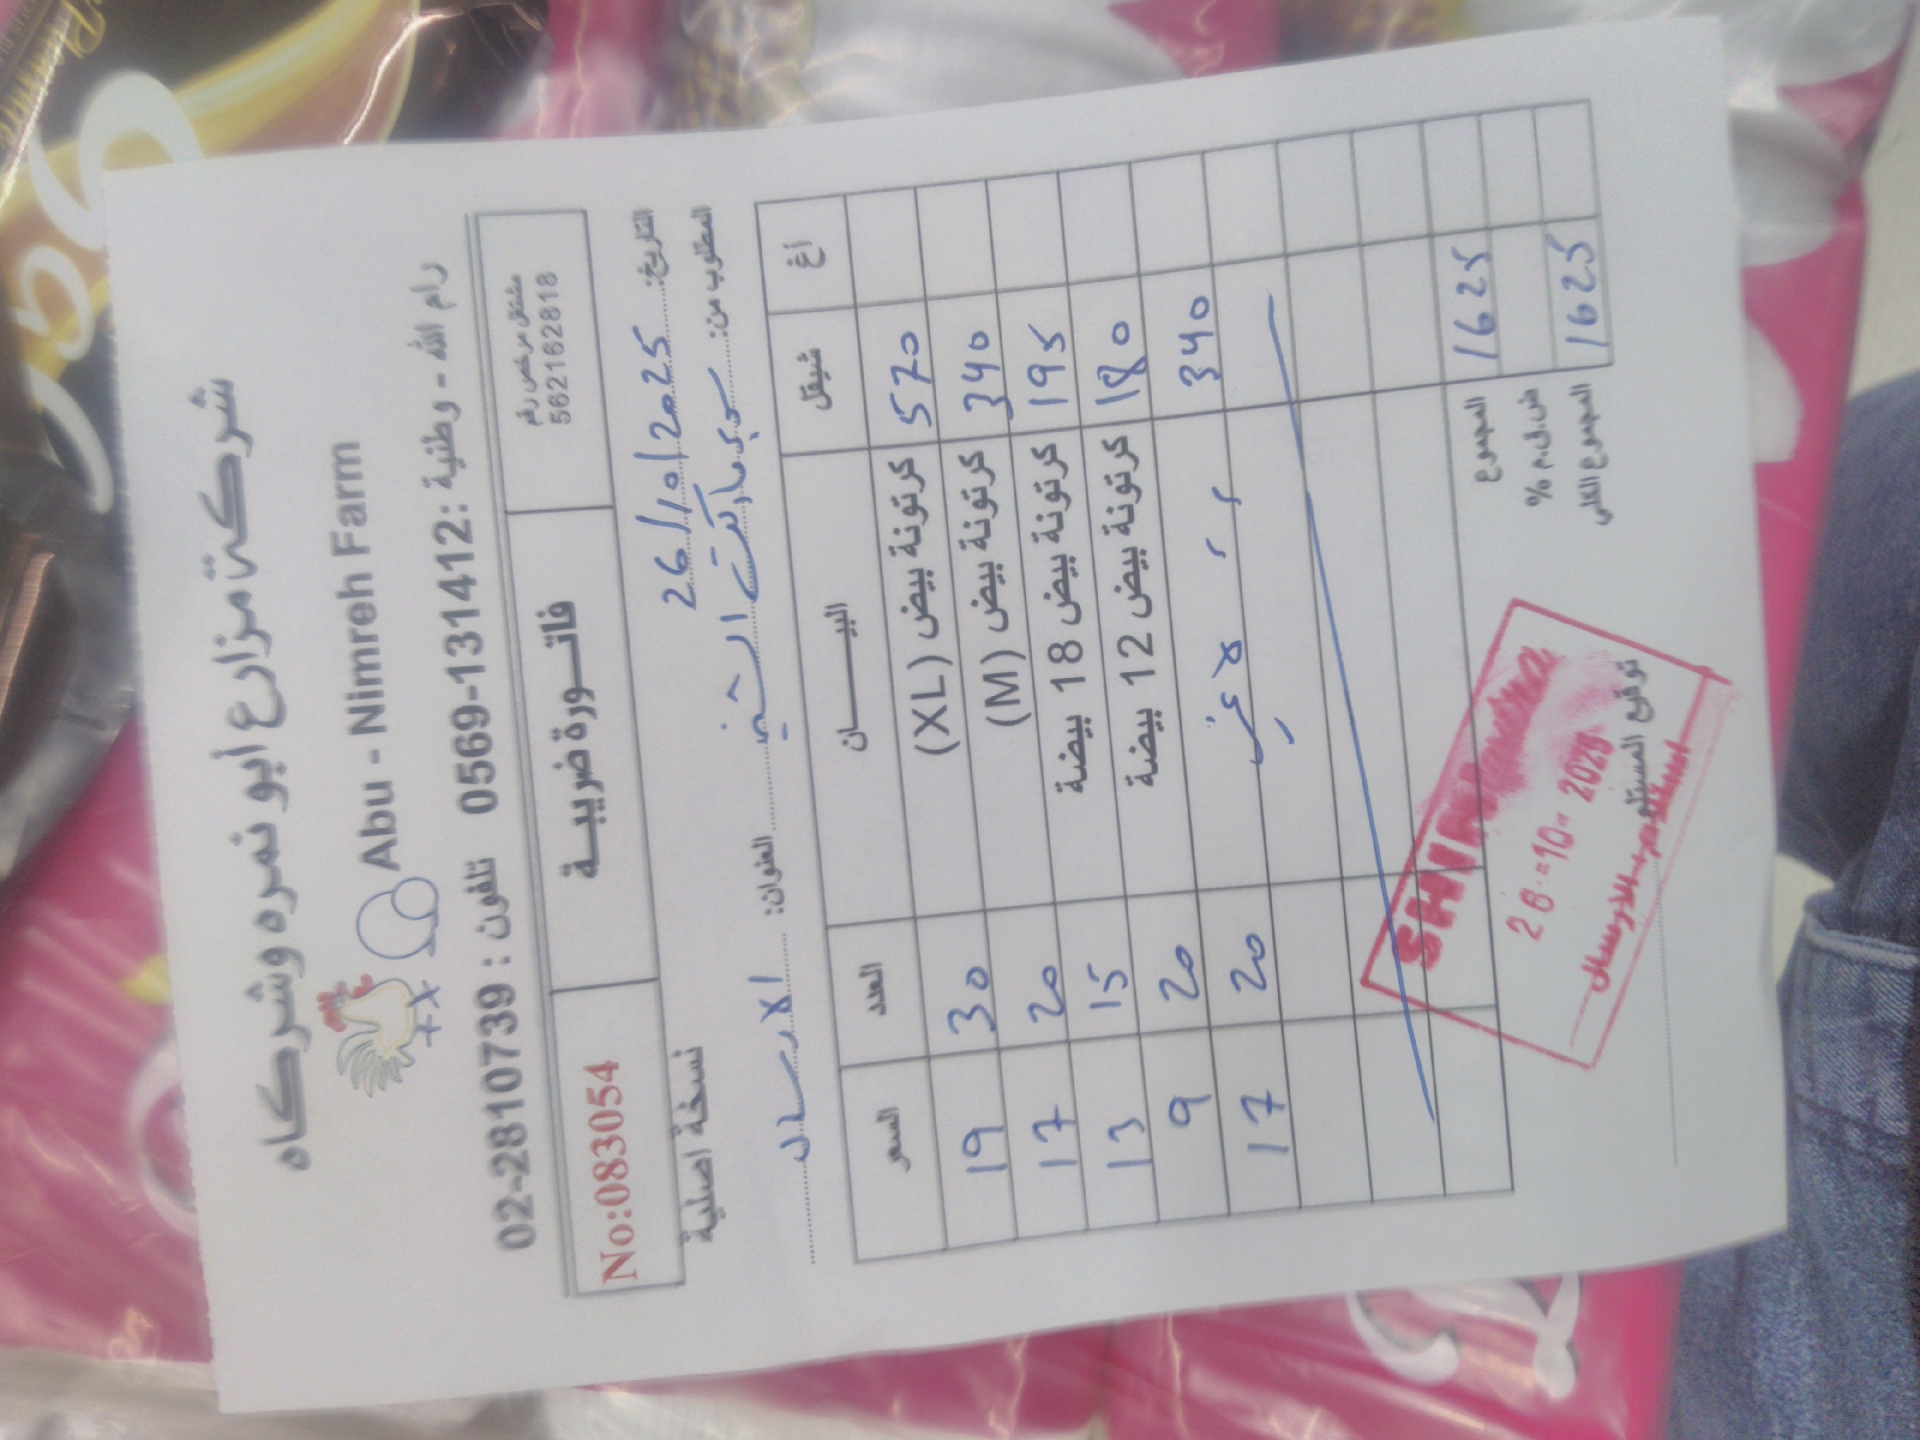 شركة مزارع أبو نمره وشركاه
Abu - Nimreh Farm
رام الله - وطنية : 0569-131412 تلفون : 02-2810739
مشتغل مرخص رقم
562162818
فاتورة ضريبية
No:083054
التاريخ: 26/10/2025
نسخة اصلية
المطلوب من: سوبر ماركت الشني العنوان: الارسال
أغ شيقل البيان العدد السعر
570 كرتونة بيض (XL) 30 19
340 كرتونة بيض (M) 20 17
195 كرتونة بيض 18 بيضة 15 13
180 كرتونة بيض 12 بيضة 20 9
340 20 17
المجموع 1625
ض.ق.م %
المجموع الكلي 1625
توقيع المستلم
الارسال